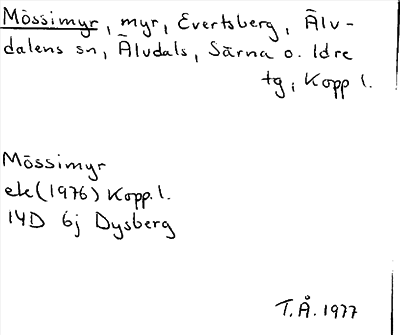 Mössimyr, myr, Evertsberg, Älv-
dalens sn, Älvdals, Särna o. Idre
tg, Kopp l.
Mössimyr
ek (1976) Kopp. l.
14D 6j Dysberg
T.Å. 1977